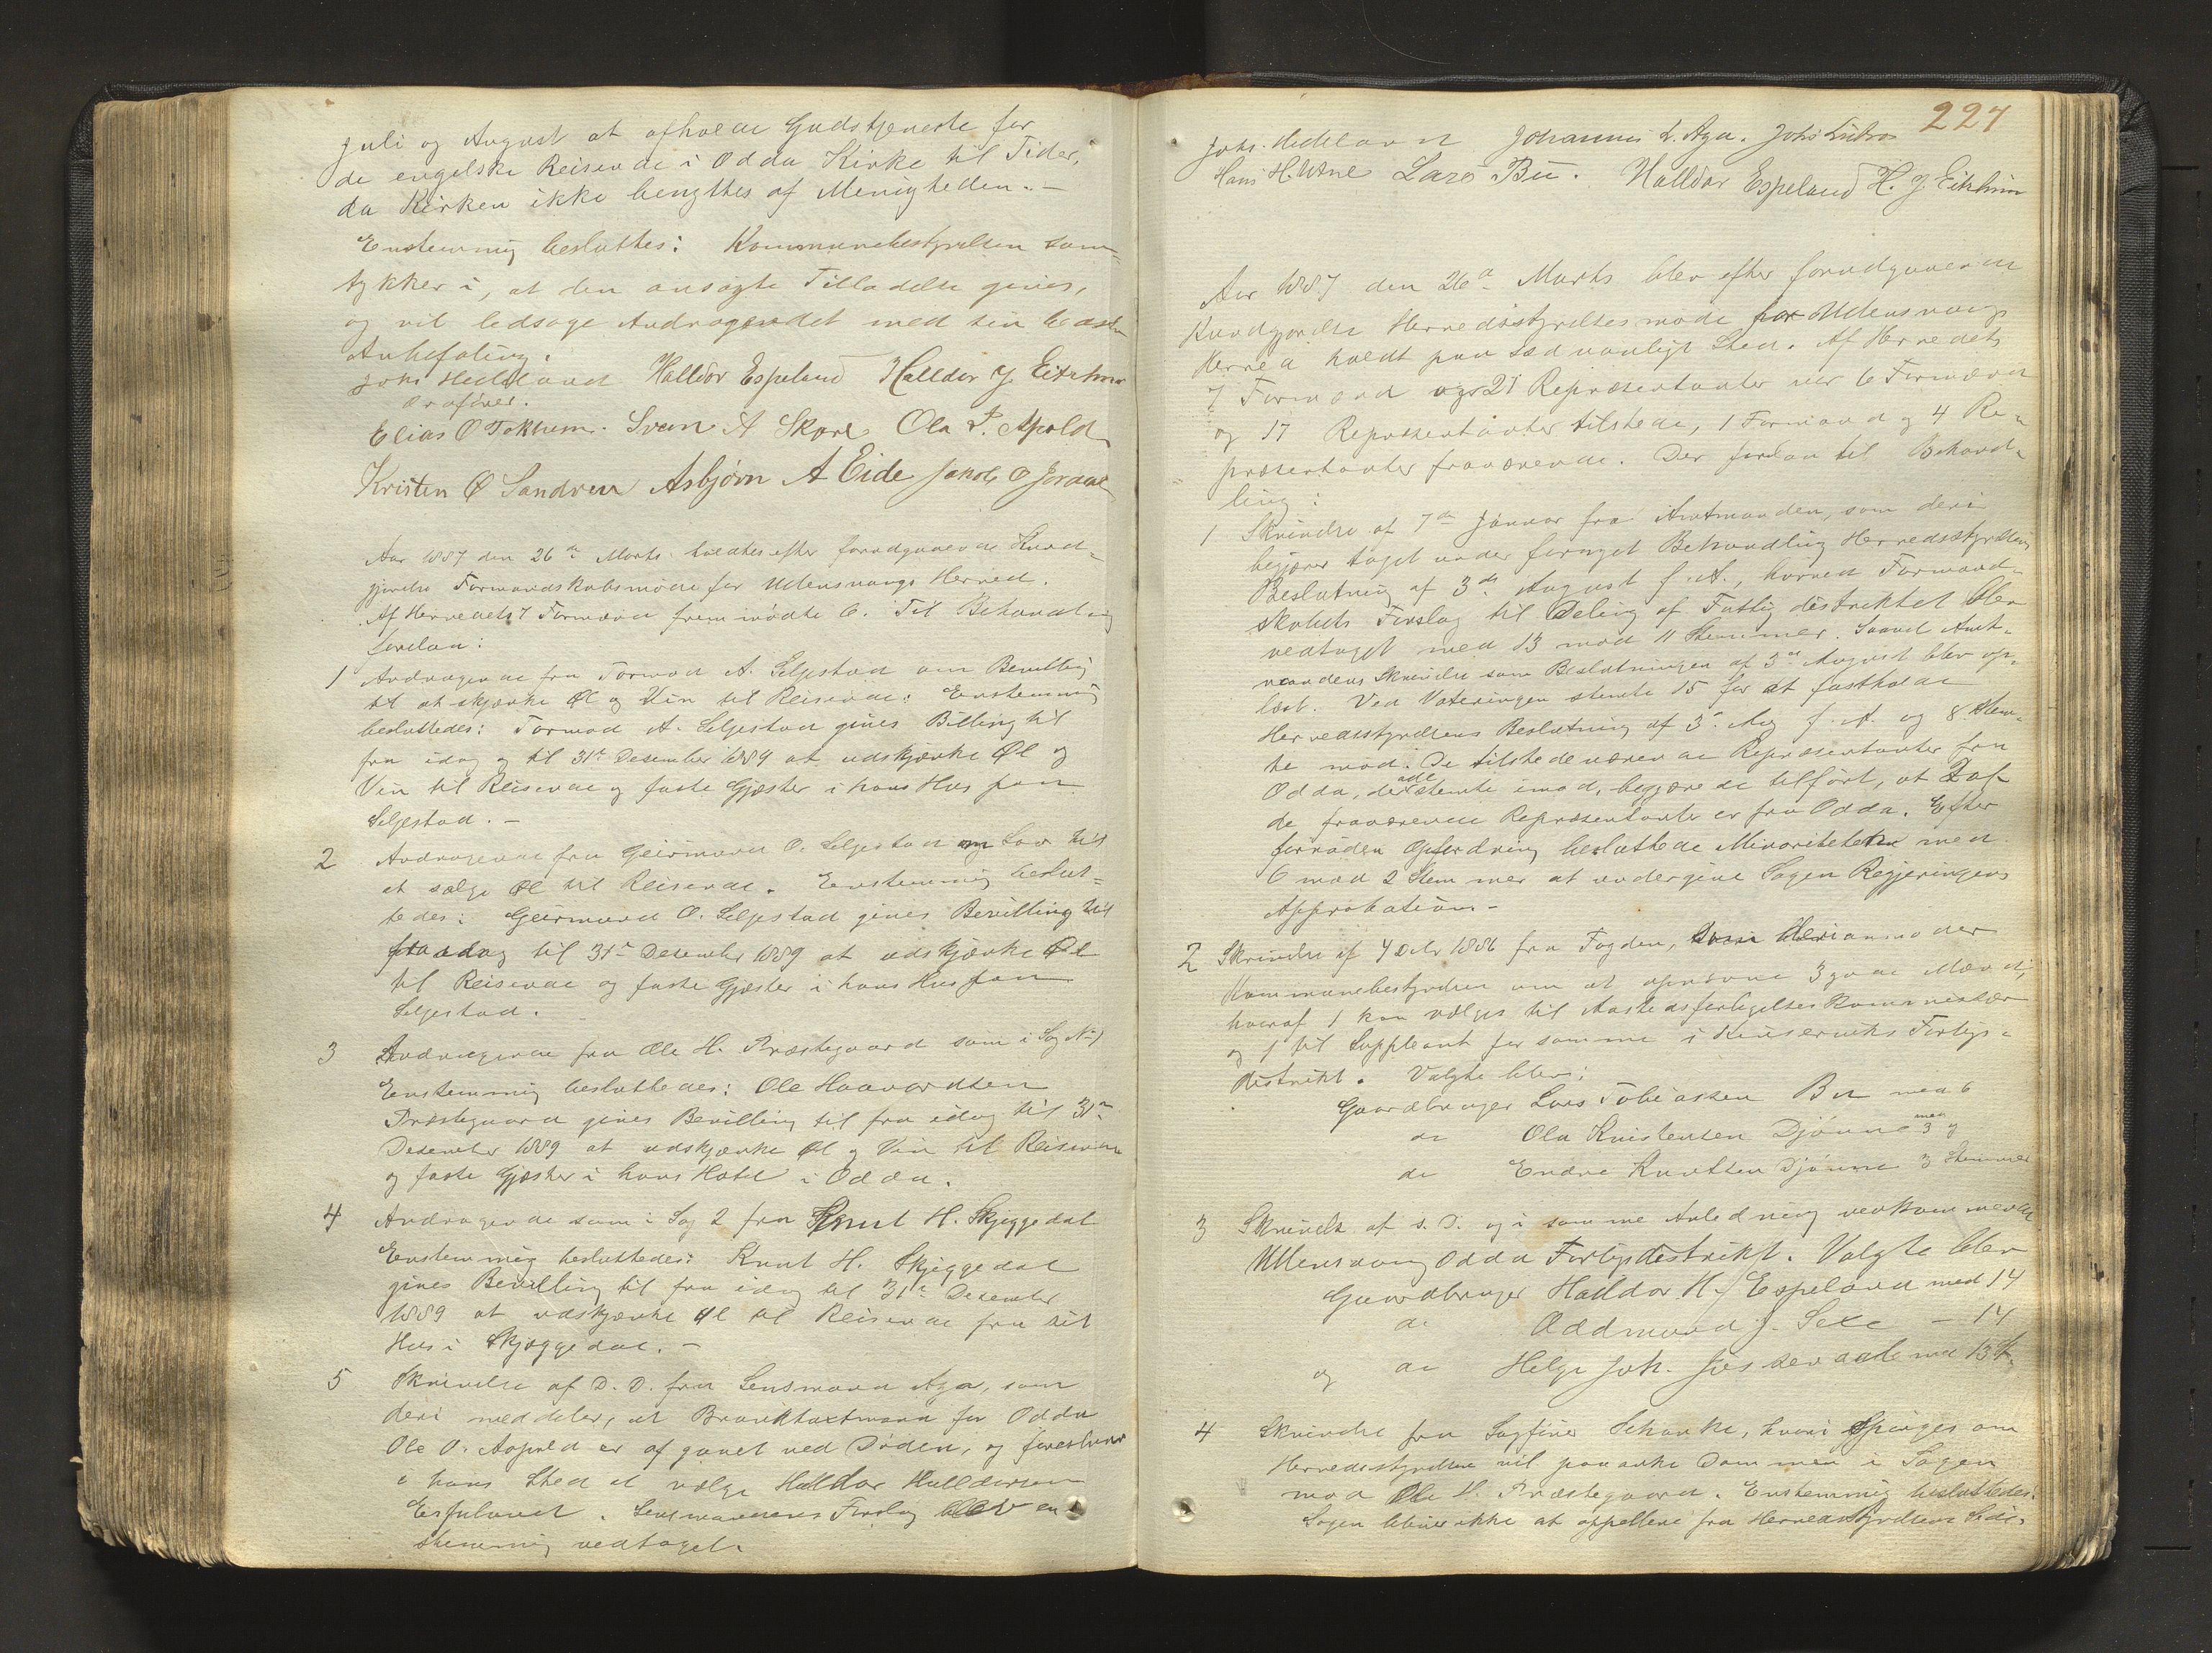 juli og August at afholde Gudstjeneste for
de engelske Reisende i Odda Kirke til Tider,
da Kirken ikke benyttes af Menigheden. —
Enstemmig besluttes: Kommunebestyrelsen sam-
tykker i, at den ansøgte Tilladelse gives,
og vil ledsage Andragendet med sin bedste
Anbefaling.
Johs Hedeland Halldor Espeland Halldor J. Eitrheim
Ordfører.
Elias O Tokheim. Sven A Skare Ola L. Apold
Kristen O Sandven Asbjørn A Eide Jakob O Jordal
Aar 1887 den 26de Marts holdtes efter forudgaaende Kund-
gjørelse Formandskabsmøde for Udensvangs Herred.
Af Herredets 7 Formænd fremmødte 6. Til Behandling
forelaa:
1 Andragende fra Tormod A. Seljestad om Bevilling
til at skjænke Øl og Vin til Reisende: Enstemmig
besluttedes: Tormod A. Seljestad gives Billing til
fra idag og til 31te Desember 1889 at udskjænke Øl og
Vin til Reisende og faste Gjæster i hans Hus paa
Seljestad. —
2 Andragende fra Geirmund O. Seljestad om Lov til
at sælge Øl til Reisende. Enstemmig beslut-
tedes: Geirmund O. Seljestad gives Bevilling til
fra idag til 31te Desember 1889 at udskjænke Øl
til Reisende og faste Gjæster i hans Hus paa
Seljestad.
3 Andragende fra Ole H. Præstegaard som i Sag No 1
Enstemmig besluttedes: Ole Haavardsen
Præstegaard gives Bevilling til fra idag til 31te
Desember 1889 at udskjænke Øl og Vin til Reisende
og faste Gjæster i hans Hotel i Odda.
4 Andragende som i Sag 2 fra Knut H. Skjeggedal
Enstemmig besluttedes: Knut H. Skjeggedal
gives Bevilling til fra idag til 31te Desember
1889 at udskjænke Øl til Reisende fra sit
Hus i Skjæggedal. —
5 Skrivelse af D. D. fra Lensmand Aga, som
deri meddeler, at Brandtaxtmand for Odda
Ole O. Aapold er afgaaet ved Døden, og foreslaar
i hans Sted at vælge Halldor Halldorsen
Espeland. Lensmandens Forslag blev en-
stemmig vedtaget.
227
Johs. Hedeland Johannes L. Aga. Johs Lutro
Hans H. Utne Lars Bu. Halldor Espeland H. J. Eitrheim
Aar 1887 den 26de Marts blev efter forudgaaende
Kundgjørelse Herredsstyrelsesmøde for Udensvangs
Herred holdt paa sædvanligt Sted. Af Herredets
7 Formænd og 21 Repræsentanter var 6 Formænd
og 17 Repræsentanter tilstede, 1 Formand og 4 Re-
præsentanter fraværende. Der forelaa til Behand-
ling:
1 Skrivelse af 7de Januar fra Amtmanden, som deri
begjærer taget under fornyet Behandling Herredsstyrelsens
Beslutning af 3de August f. A., hvorved Formand-
skabets Forslag til Deling af Fattigdistriktet blev
vedtaget med 13 mod 11 Stemmer. Saavel Amt-
mandens Skrivelse som Beslutningen af 3de August blev op-
læst. Ved Voteringen stemte 15 for at fastholde
Herredsstyrelsens Beslutning af 3de Aug f. A. og 8 stem-
te mod. De tilstedeværende Repræsentanter fra
Odda, der alle stemte imod, begjærede tilført, at 2 af
de fraværende Repræsentanter er fra Odda. Efter
forrøden Opfordring besluttede Minoriteten med
6 mod 2 Stemmer at undergive Sagen Regjeringens
Approbation —
2 Skrivelse af 4 Debr 1886 fra Fogden, deri anmoder
Kommunebestyrelsen om at opnævne 3 gode Mænd,
hvoraf 1 kan vælges til Aastedsforligelseskommissær
og 1 til Suppleant for samme i Kinserviks Forligs-
distrikt. Valgte blev:
Gaardbruger Lars Tobiassen Bu med 6
do Ola Kristensen Djønne med 3 og
do Endre Knutsen Djønne 3 Stemmer
3 Skrivelse af s. D. og i samme Anledning vedkommende
Ullensvang Odda Forligsdistrikt. Valgte blev
Gaardbruger Halldor H. Espeland med 14
do Oddmund J. Sexe — 14
og do Helge Joh. Jøssendal med 13 St.
4 Skrivelse fra Sagfører Schanke, hvori spørges om
Herredsstyrelsen vil paaanke Dommen i Sagen
mod Ole H. Præstegaard. Enstemmig besluttedes:
Sagen bliver ikke at appellere fra Herredsstyrelsens Side.